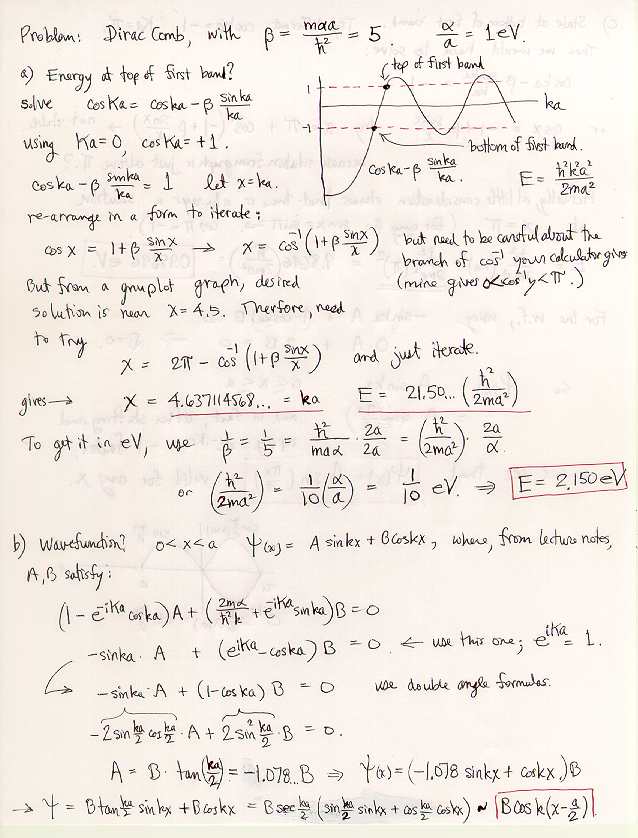 Problem: Dirac Comb, with β = mαa/ħ² = 5. α/a = 1 eV.
a) Energy at top of first band?
top of first band
solve cos Ka = cos ka - β sin ka/ka
1
-1
ka
using Ka = 0, cos Ka = +1.
bottom of first band.
cos ka - β sin ka/ka.
E = ħ²k²a²/2ma²
cos ka - β sin ka/ka = 1 let x = ka.
re-arrange in a form to iterate:
cos x = 1 + β sin x/x → x = cos⁻¹(1 + β sin x/x) but need to be careful about the
branch of cos⁻¹ your calculator gives
(mine gives 0 < cos⁻¹y < π.)
But from a gnuplot graph, desired
solution is near x = 4.5. Therefore, need
to try
x = 2π - cos⁻¹(1 + β sin x/x) and just iterate.
gives → x = 4.637114568... = ka E = 21.50... (ħ²/2ma²)
To get it in eV, use 1/β = 1/5 = ħ²/maα · 2a/2a = (ħ²/2ma²) · 2a/α.
or (ħ²/2ma²) = 1/10 (α/a) = 1/10 eV. ⇒ E = 2.150 eV
b) Wavefunction? 0 < x < a ψ(x) = A sin kx + B cos kx, where, from lecture notes,
A, B satisfy:
(1 - e^-iKa cos ka) A + (2mα/ħ²k + e^-iKa sin ka) B = 0
-sin ka · A + (e^iKa - cos ka) B = 0. ← use this one; e^iKa = 1.
→ -sin ka · A + (1 - cos ka) B = 0 use double angle formulas.
-2 sin ka/2 cos ka/2 · A + 2 sin² ka/2 · B = 0.
A = B · tan(ka/2) = -1.078... B ⇒ ψ(x) = (-1.078 sin kx + cos kx) B
→ ψ = B tan ka/2 sin kx + B cos kx = B sec ka/2 (sin ka/2 sin kx + cos ka/2 cos kx) ~ B cos k(x - a/2)